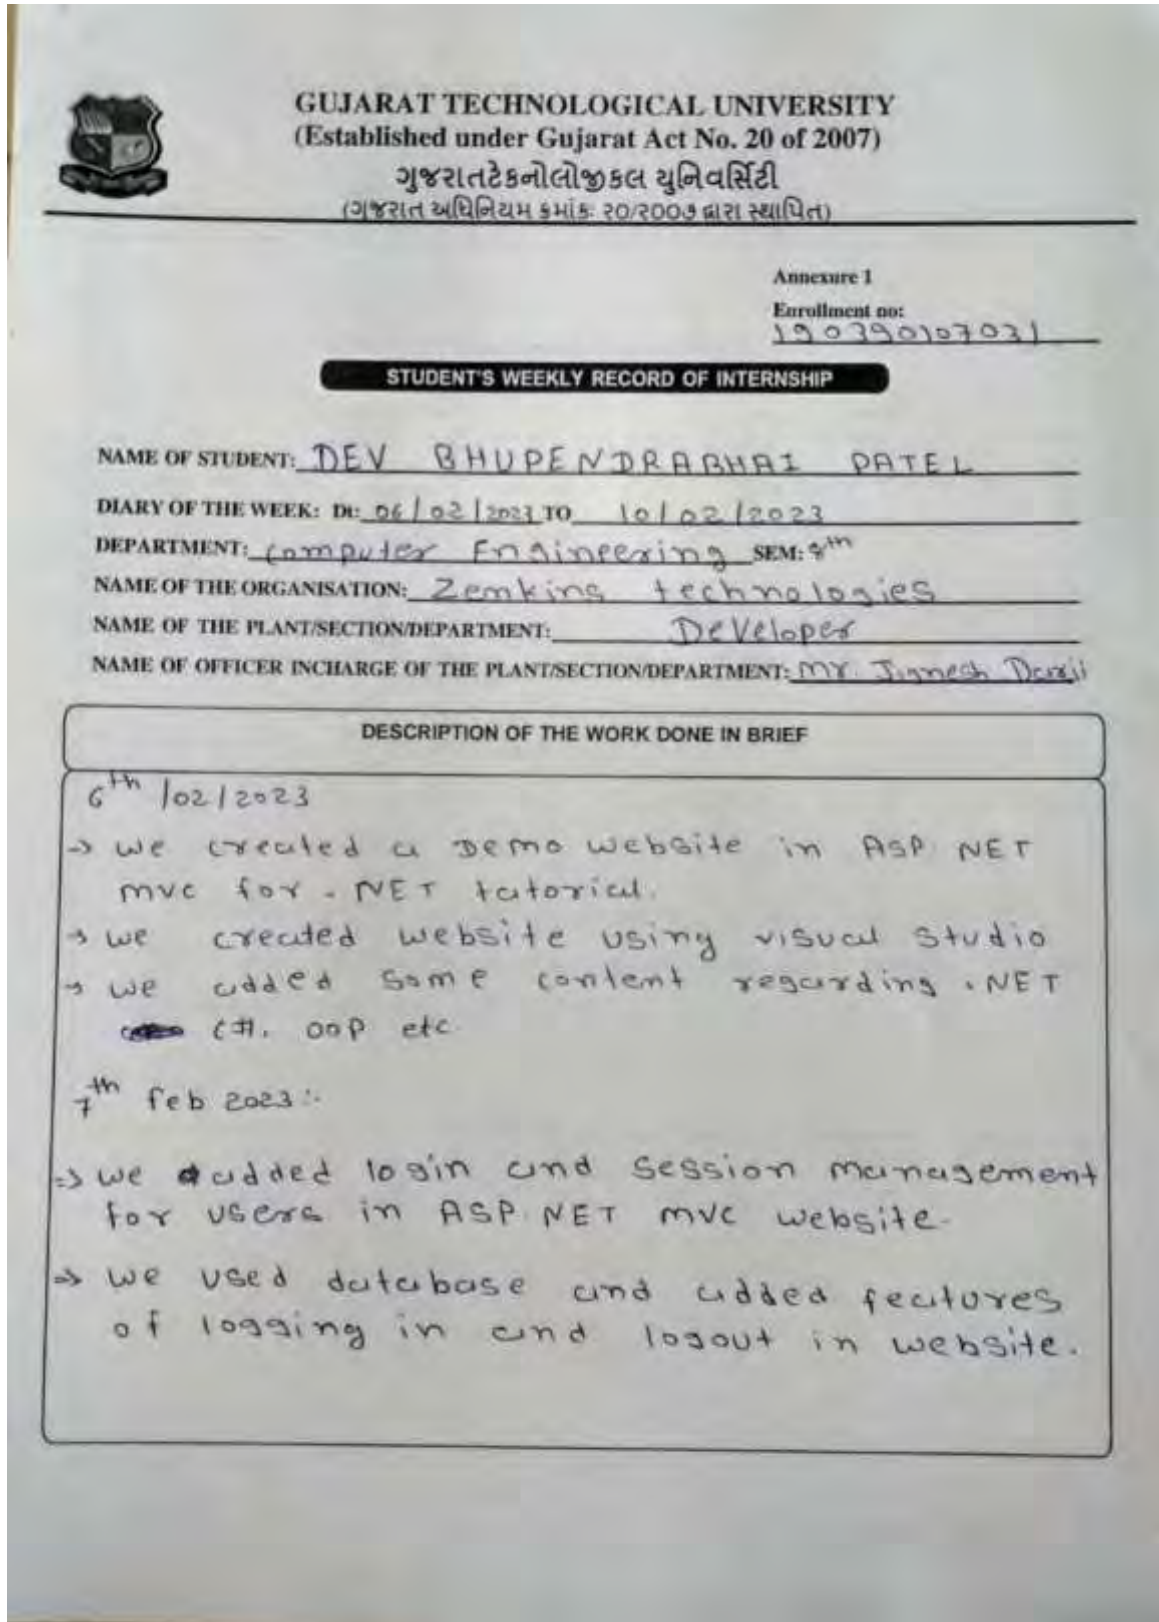 GUJARAT TECHNOLOGICAL UNIVERSITY
(Established under Gujarat Act No. 20 of 2007)
ગુજરાતટેકનોલોજીકલ યુનિવર્સિટી
(ગુજરાત અધિનિયમ ક્રમાંક: ૨૦/૨૦૦૭ દ્વારા સ્થાપિત)
Annexure 1
Enrollment no:
190390107031
STUDENT'S WEEKLY RECORD OF INTERNSHIP
NAME OF STUDENT: DEV BHUPENDRABHAI PATEL
DIARY OF THE WEEK: Dt: 06/02/2023 TO 10/02/2023
DEPARTMENT: Computer Engineering SEM: 8th
NAME OF THE ORGANISATION: Zemking technologies
NAME OF THE PLANT/SECTION/DEPARTMENT: Developer
NAME OF OFFICER INCHARGE OF THE PLANT/SECTION/DEPARTMENT: Mr. Jignesh
DESCRIPTION OF THE WORK DONE IN BRIEF
6th /02/2023
→ we created a Demo website in ASP.NET
mvc for .NET tutorial.
→ we created website using visual studio
→ we added some content regarding .NET
C#. OOP etc.
7th feb 2023:-
⇒ we added login and session management
for users in ASP.NET mvc website.
⇒ we used database and added features
of logging in and logout in website.